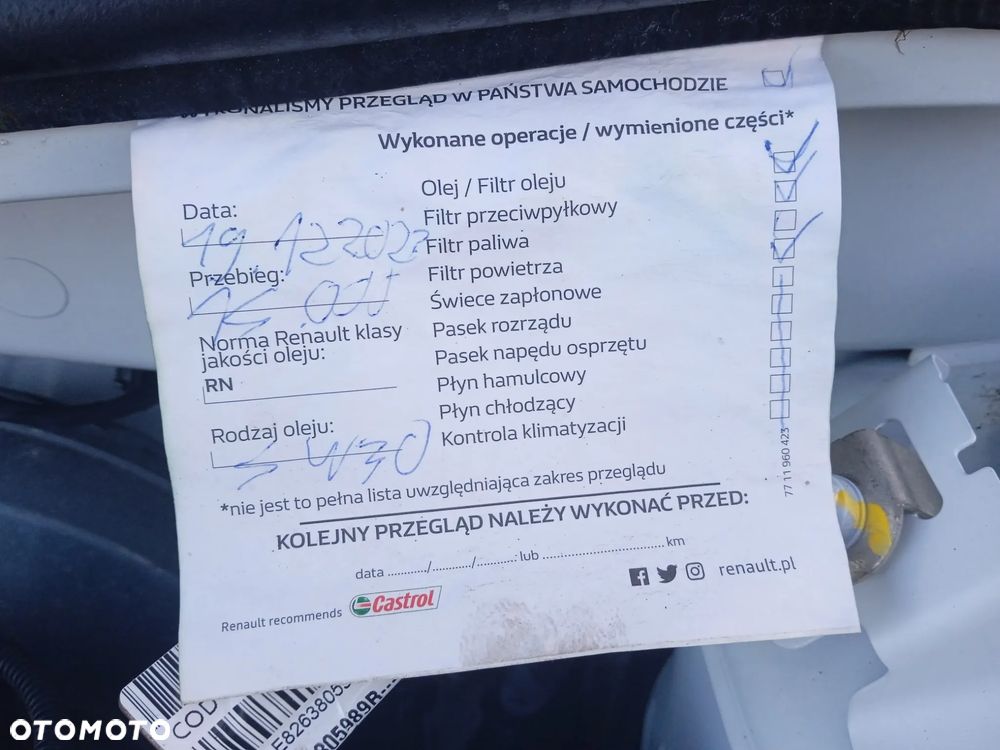 WYKONALIŚMY PRZEGLĄD W PAŃSTWA SAMOCHODZIE
Wykonane operacje / wymienione części*
Data:
19 12 202
Przebieg:
Norma Renault klasy
jakości oleju:
RN
Rodzaj oleju:
5W30
Olej / Filtr oleju
Filtr przeciwpyłkowy
Filtr paliwa
Filtr powietrza
Świece zapłonowe
Pasek rozrządu
Pasek napędu osprzętu
Płyn hamulcowy
Płyn chłodzący
Kontrola klimatyzacji
77 11 960 423
*nie jest to pełna lista uwzględniająca zakres przeglądu
KOLEJNY PRZEGLĄD NALEŻY WYKONAĆ PRZED:
data ............/............/............ lub ................................ km
renault.pl
Renault recommends Castrol
COD
E8263805
805989R
OTOMOTO